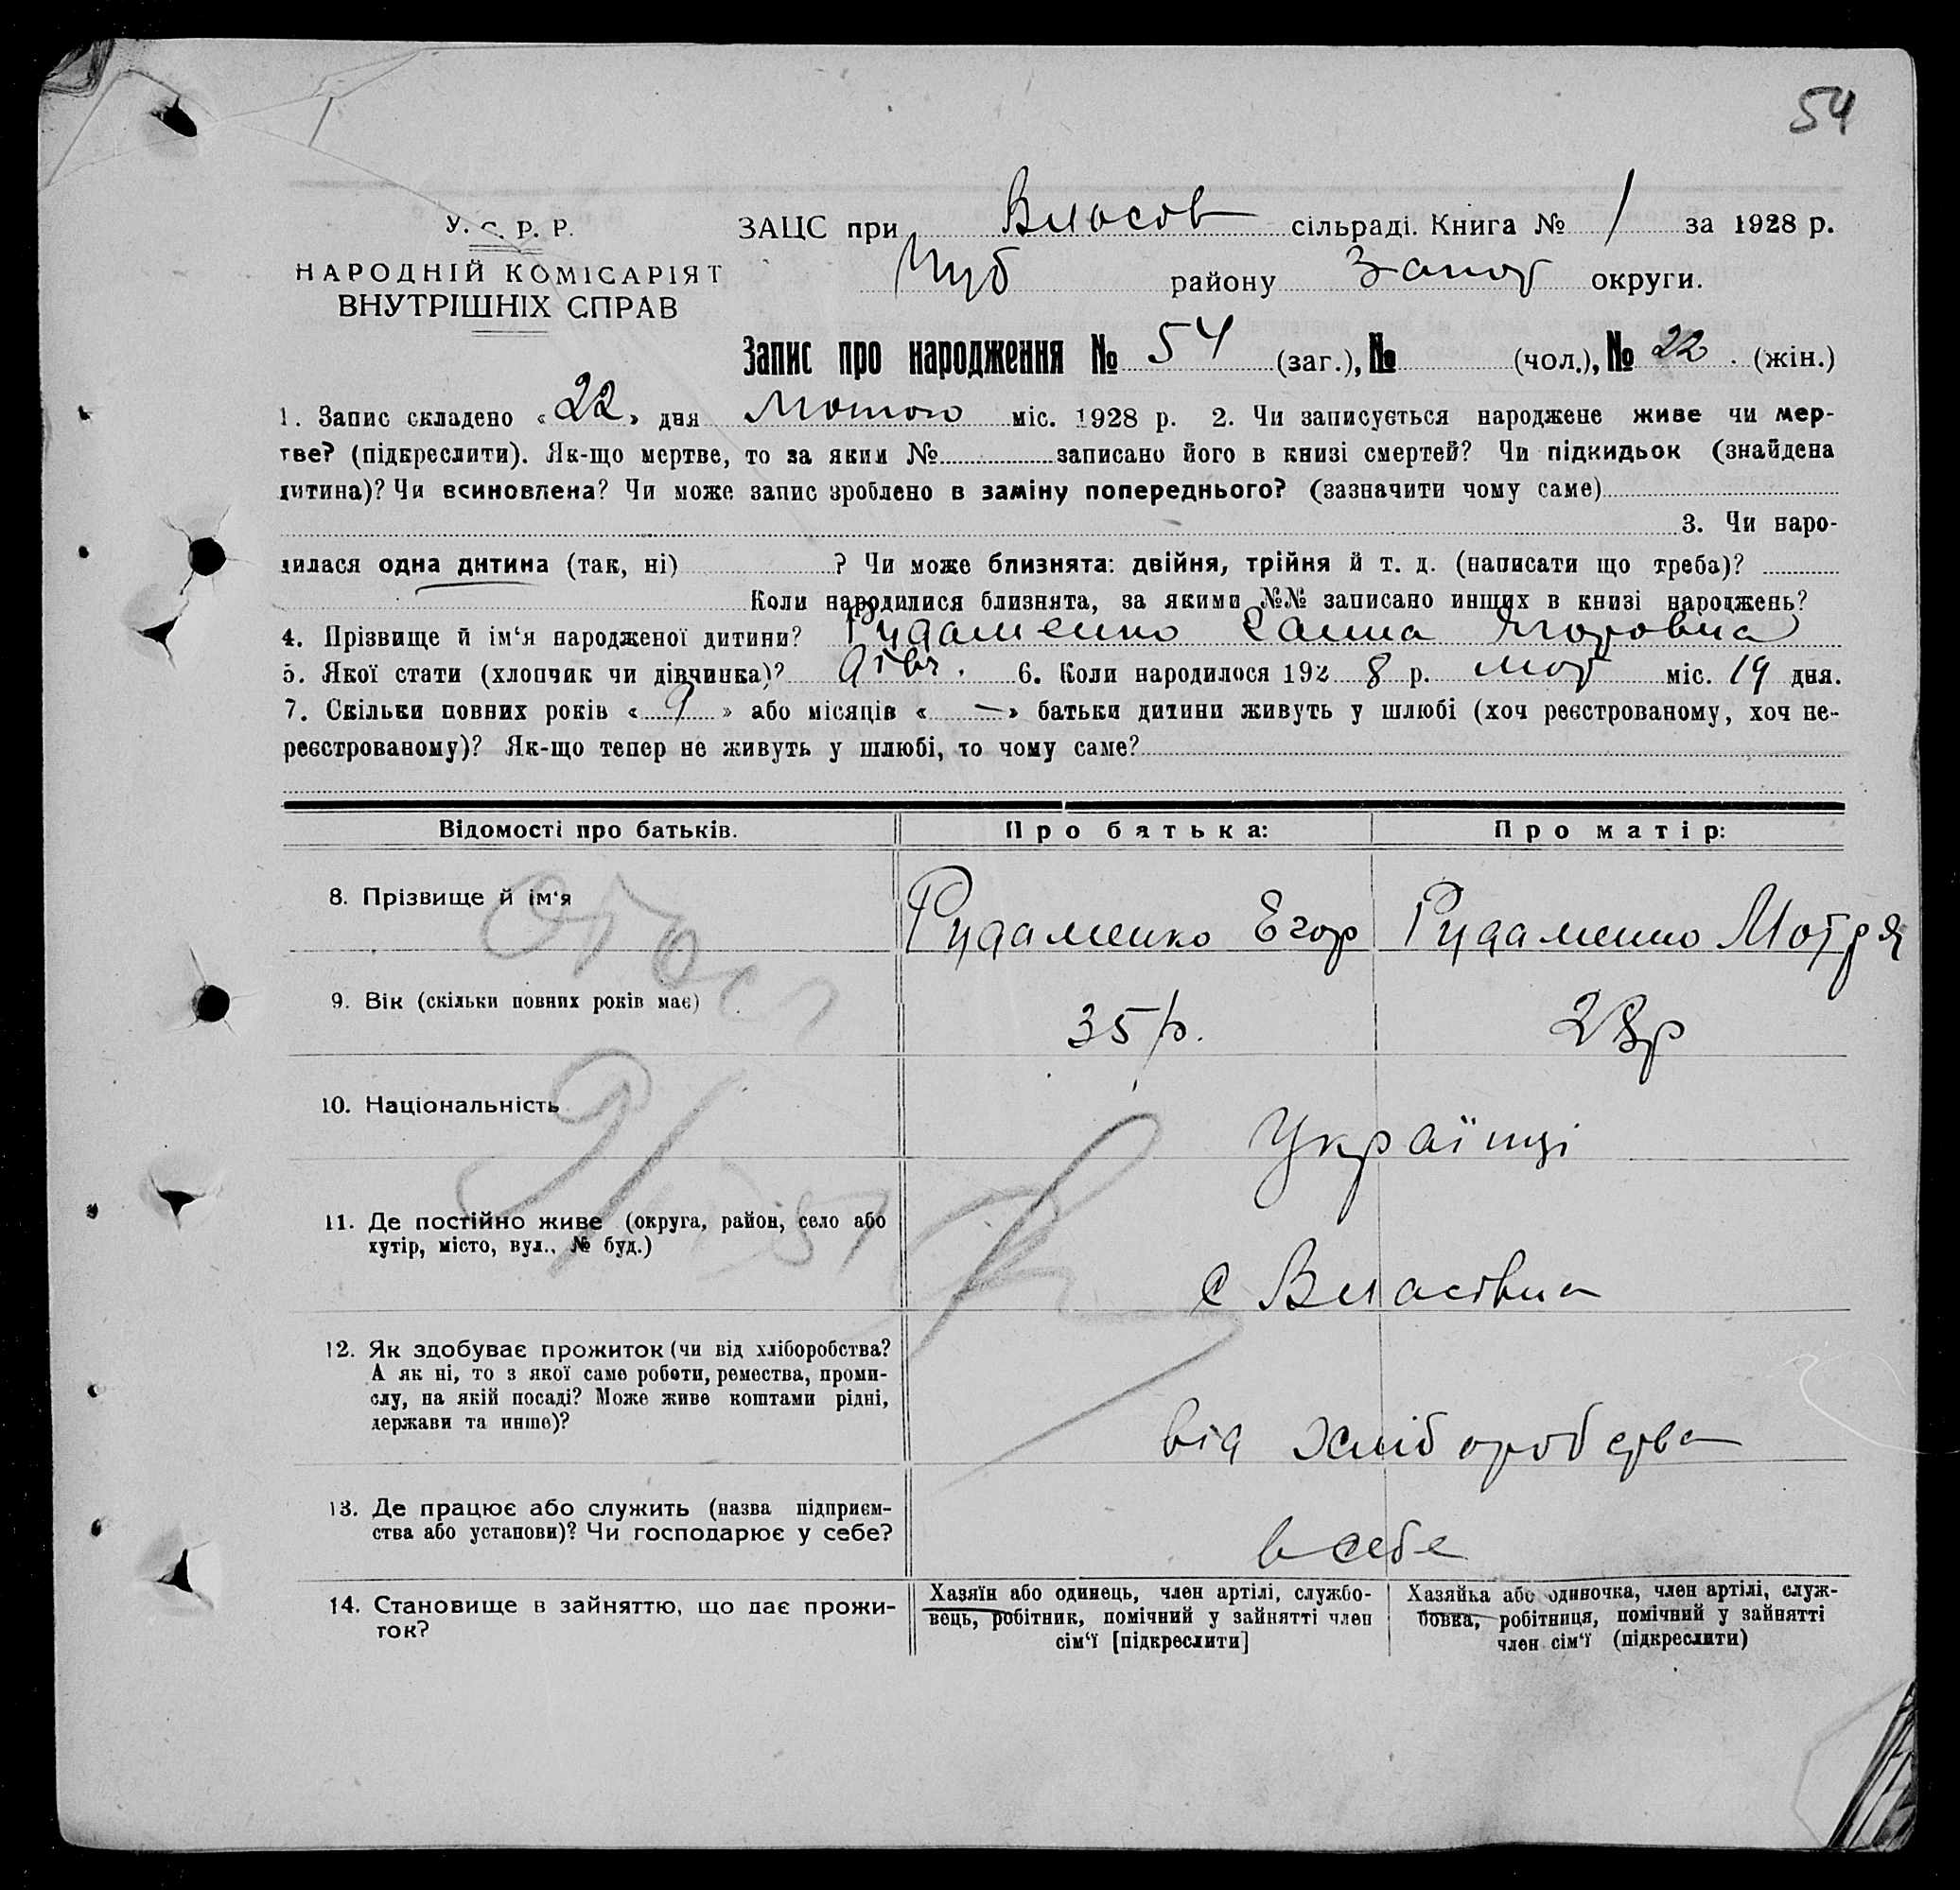 54
У. С. Р. Р.
НАРОДНІЙ КОМІСАРІЯТ
ВНУТРІШНІХ СПРАВ
ЗАЦС при Власов сільраді. Книга № 1 за 1928 р.
Чуб району Запор округи.
Запис про народження № 54 (заг.), № (чол.), № 22 (жін.)
1. Запис складено «22» дня Лютого міс. 1928 р. 2. Чи записується народжене живе чи мер-
тве? (підкреслити). Як-що мертве, то за яким № записано його в книзі смертей? Чи підкидьок (знайдена
дитина)? Чи всиновлена? Чи може запис зроблено в заміну попереднього? (зазначити чому саме)
3. Чи наро-
дилася одна дитина (так, ні) ? Чи може близнята: двійня, трійня й т. д. (написати що треба)?
Коли народилися близнята, за якими №№ записано инших в книзі народжень?
4. Прізвище й ім‘я народженої дитини? Рудаменко Ганна Егоровна
5. Якої стати (хлопчик чи дівчинка)? дівч. 6. Коли народилося 192 8 р. лют міс. 19 дня.
7. Скільки повних років « 9 » або місяців « — » батьки дитини живуть у шлюбі (хоч реєстрованому, хоч не-
реєстрованому)? Як-що тепер не живуть у шлюбі, то чому саме?
Відомості про батьків. Про батька: Про матір:
8. Прізвище й ім‘я Рудаменко Егор Рудаменко Мотря
9. Вік (скільки повних років має) 35 р. 28 р
10. Національність Українці
11. Де постійно живе (округа, район, село або
хутір, місто, вул., № буд.)
с Власівка
12. Як здобуває прожиток (чи від хліборобства?
А як ні, то з якої саме роботи, ремества, проми-
слу, на якій посаді? Може живе коштами рідні,
держави та инше)?
від хліборобства
13. Де працює або служить (назва підприєм-
ства або установи)? Чи господарює у себе?
в себе
14. Становище в зайняттю, що дає прожи-
ток?
Хазяїн або одинець, член артілі, службо-
вець, робітник, помічний у зайнятті член
сім‘ї [підкреслити]
Хазяйка або одиночка, член артілі, служ-
бовка, робітниця, помічний у зайнятті
член сім‘ї (підкреслити)